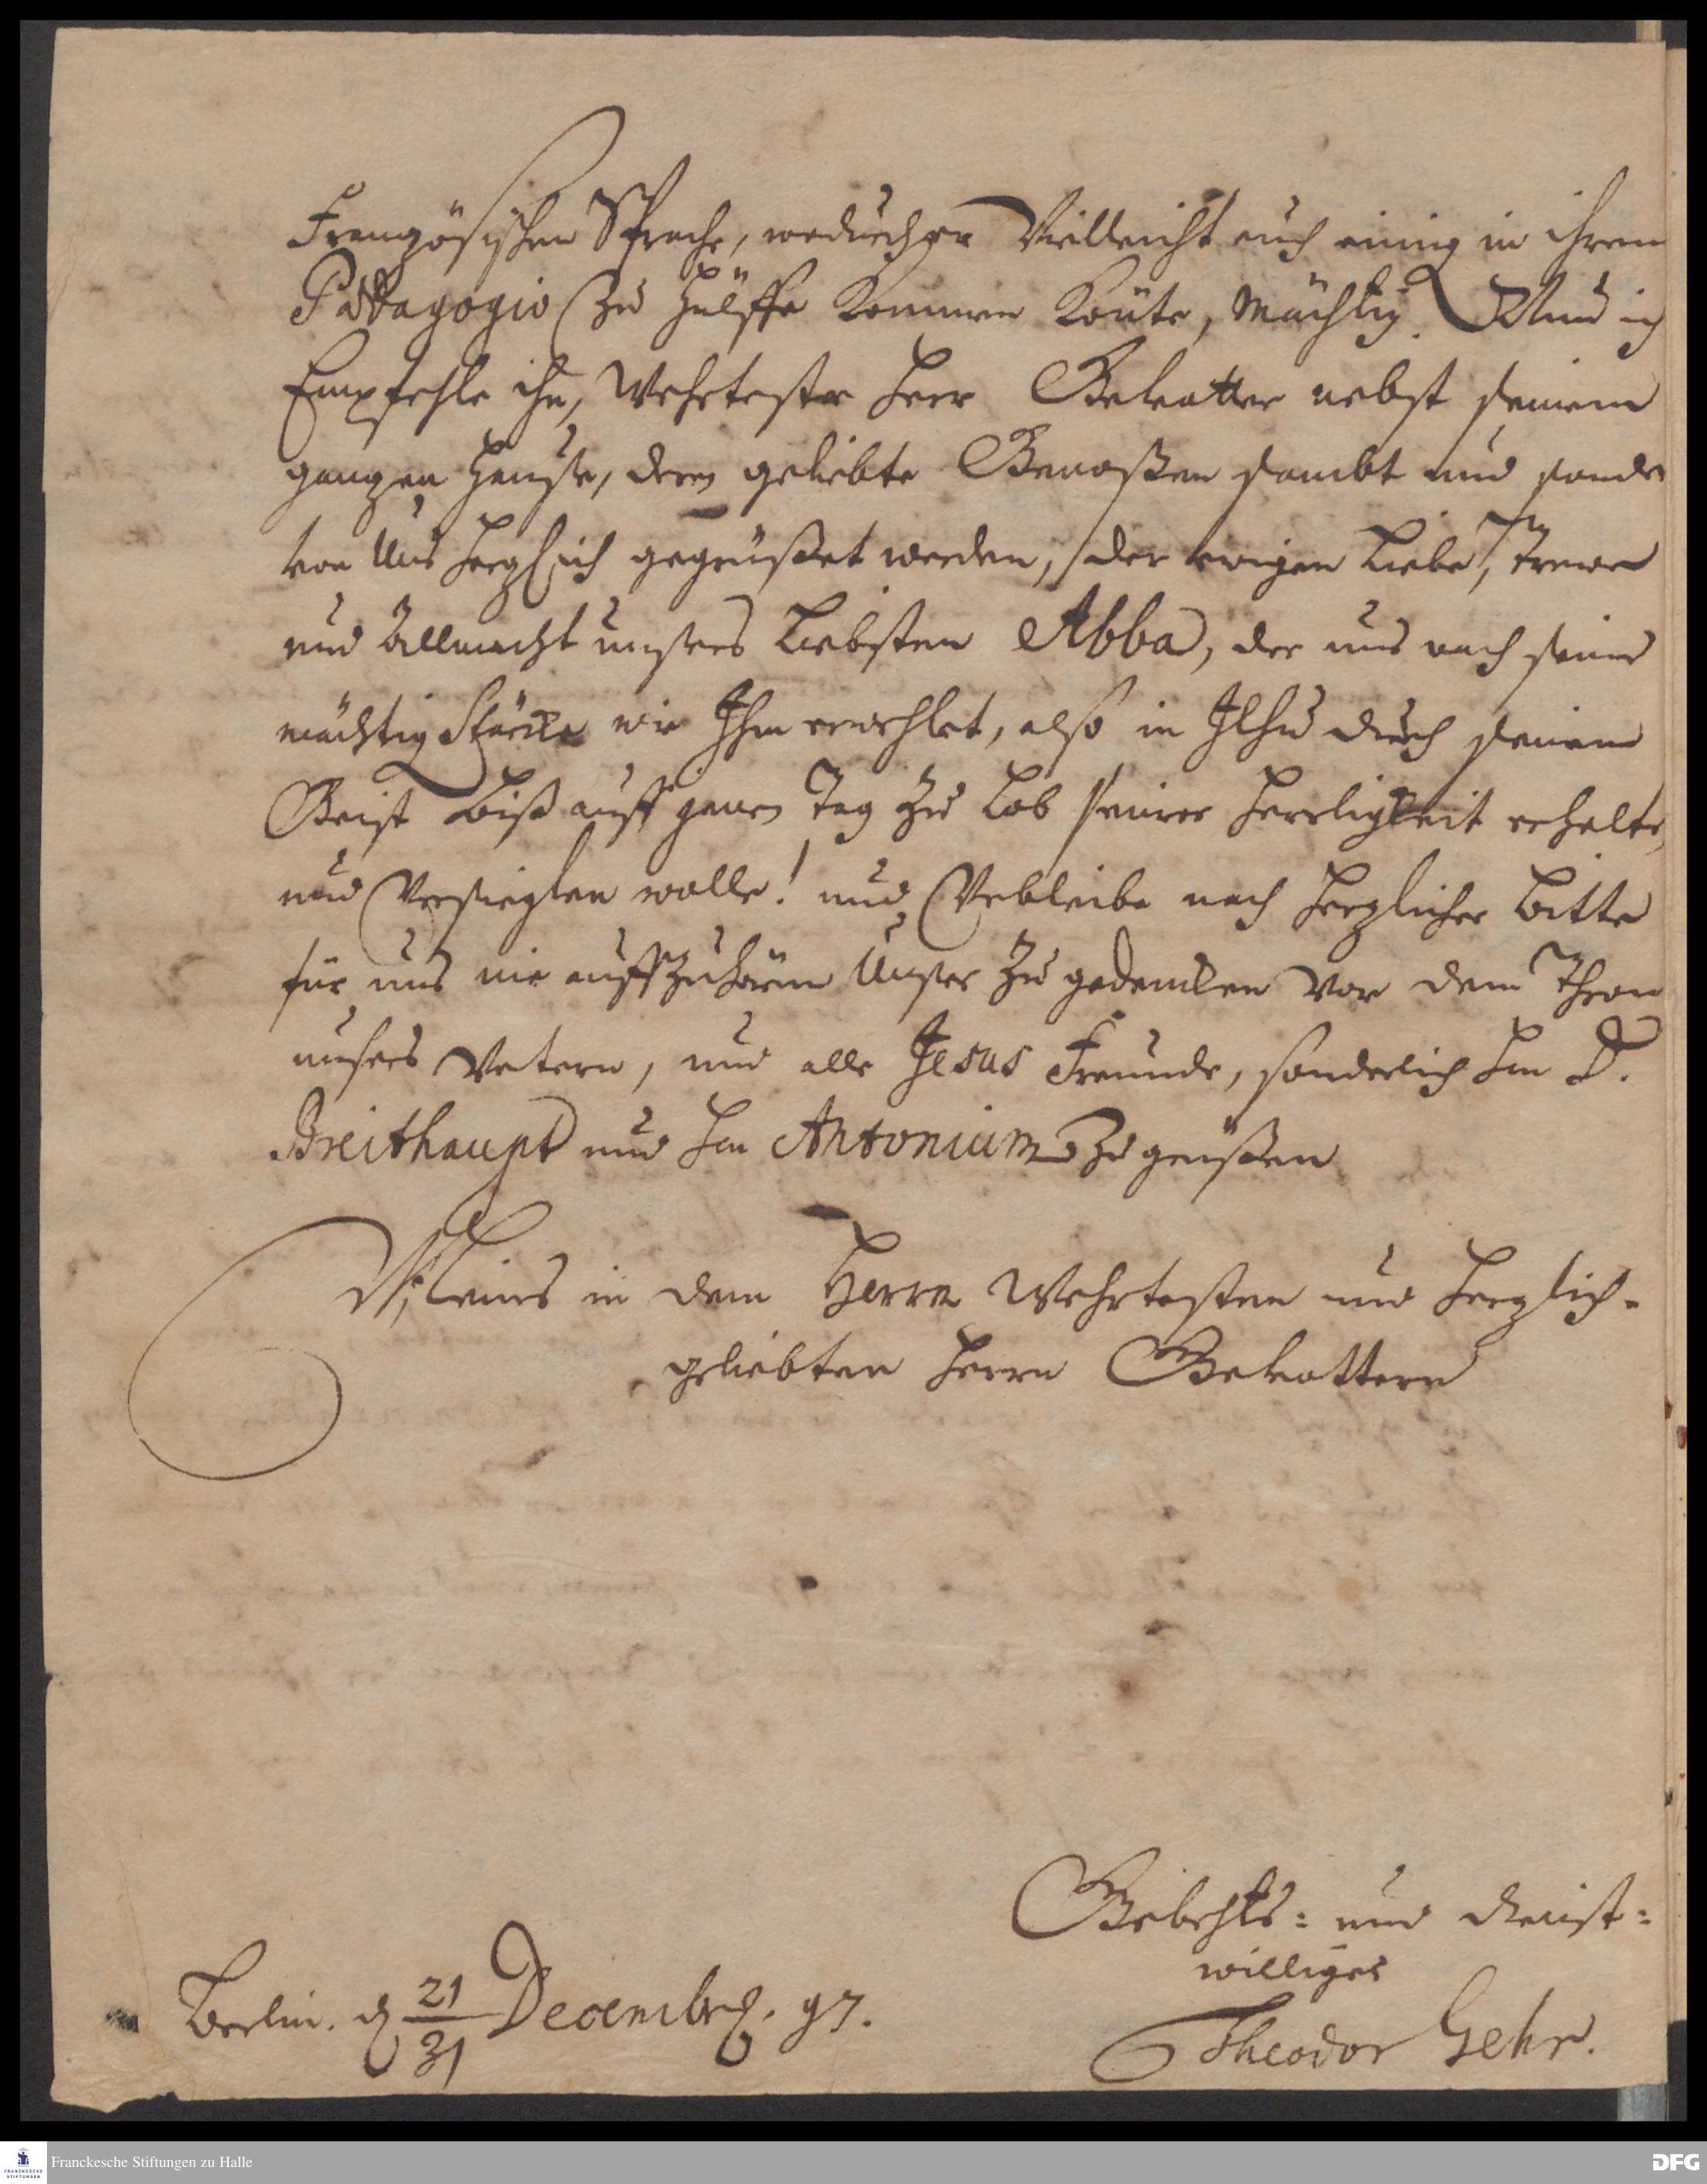 Frantzösischen Sprache, wodurch er Vielleicht auch einig in ihrem
Pædagogio zu Hülffe kommen könte, mächtig. Und ich
Empfehle ihn, Wehrtester Herr Gevatter nebst seinem
gantzen Hause, deren geliebte Genoßen sambt und sonders
von Uns hertzlich gegrüßet werden, der ewigen Liebe, Trewe
und Allmacht unsers Liebsten Abba, der uns nach seiner
mächtig Stärcke wie Ihm erwehlet, also in JEsu durch seinen
Geist biß auff jenen Tag zu Lob seiner Herrligkeit erhalten
und Versieglen wolle! und Verbleibe nach hertzlicher Bitte
für uns nie auffzuhören Unser zu gedencken vor dem Thron
unsers Vatern, und alle JEsus Freunde, sonderlich Hn D.
Breithaupt und Hn Antonium zu grüßen
Meines in dem Herrn Wehrtesten und Hertzlich-
geliebten Herrn Gevattern
Gebehts: und dienst:
williger
Berlin. d 21/31 Decembr. 97.
Theodor Gehr.
Franckesche Stiftungen zu Halle
FRANCKESCHE STIFTUNGEN
DFG